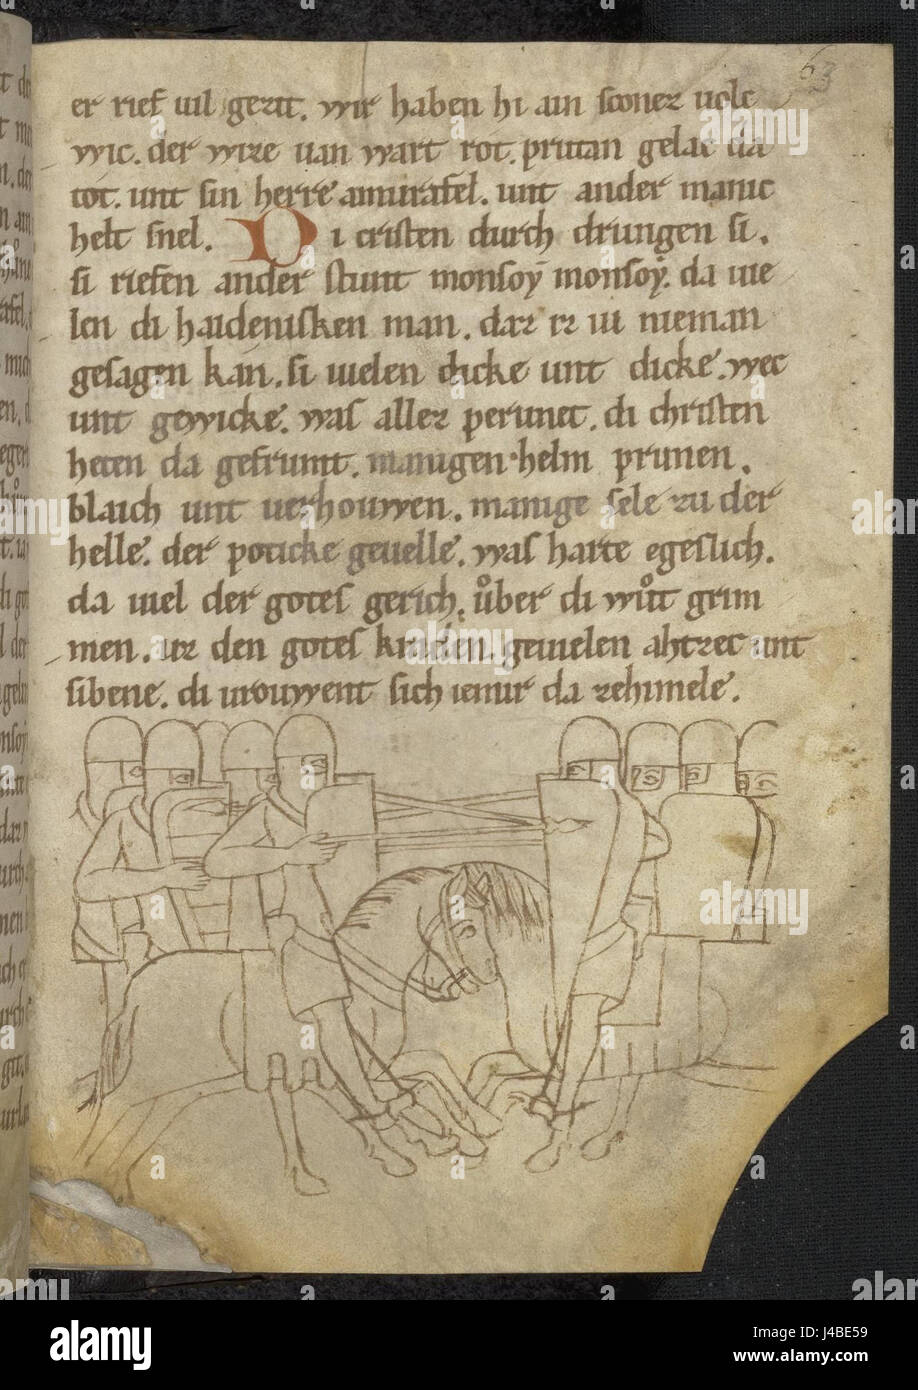 63
er rief uil gerit. wir haben hi ain sconez uolc
wic. der wize uan wart rot. prutan gelac da
tot. unt sin herre amurafel. unt ander manic
helt snel. Di cristen durch drungen si.
si riefen ander stunt monsoy monsoy. da uie
len di haidenisken man. daz iz iu nieman
gesagen kan. si uielen dicke unt dicke. wec
unt gewicke. was allez perunet. di christen
heten da gefrumt. manigen helm prunen.
blaich unt uerhouwen. manige sele zu der
helle. der poticke geuelle. was harte egeslich.
da uiel der gotes gerich. uͦber di wuͦtt grim
men. uz den gotes kinden. geuielen ahtzec unt
sibene. di urouwent sich iemir da zehimele.
alamy
Image ID: J4BE59
www.alamy.com